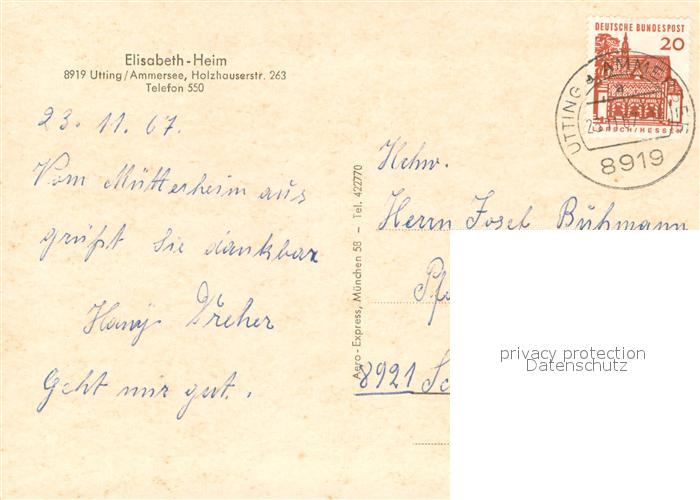 Elisabeth-Heim
8919 Utting/Ammersee, Holzhauserstr. 263
Telefon 550
23. 11. 67.
Vom Mütterheim aus
grüßt Sie dankbar
Hanji Dreher
Geht mir gut.
Aero-Express, München 58 – Tel. 422770
DEUTSCHE BUNDESPOST
20
LORSCH/HESSEN
UTTING AMMERSEE
a
8919
Hchw.
Herrn Josef Bühmann
Pf
8921 Sc
privacy protection
Datenschutz